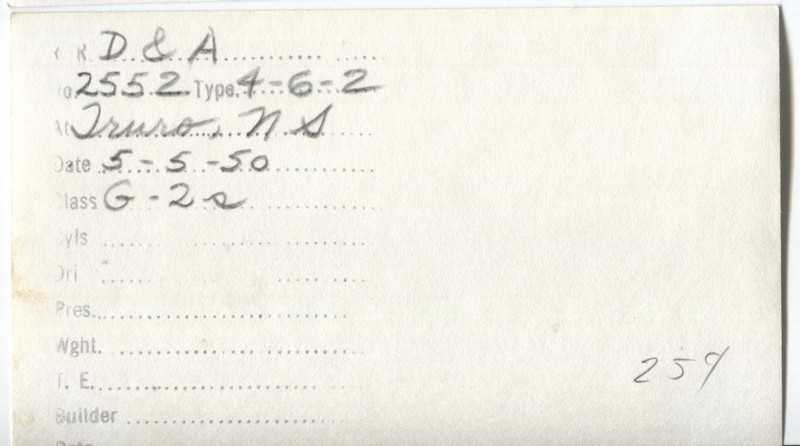 R R D & A
No. 2552 Type 4-6-2
At Truro, N S
Date 5-5-50
Class G-2s
Cyls
Dri
Pres.
Wght.
T. E.
Builder
Date
259